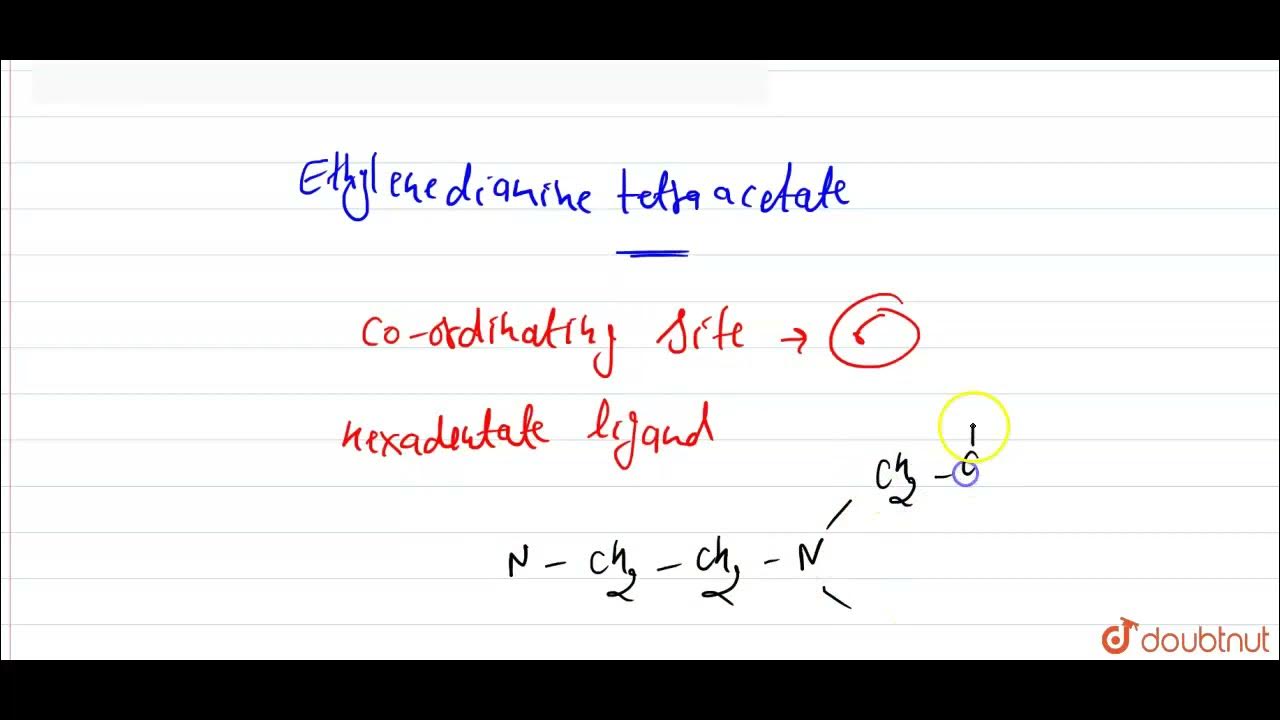 Ethylenediamine tetraacetate
co-ordinating site → 6
hexadentate ligand
CH2 - C
N - CH2 - CH2 - N
doubtnut